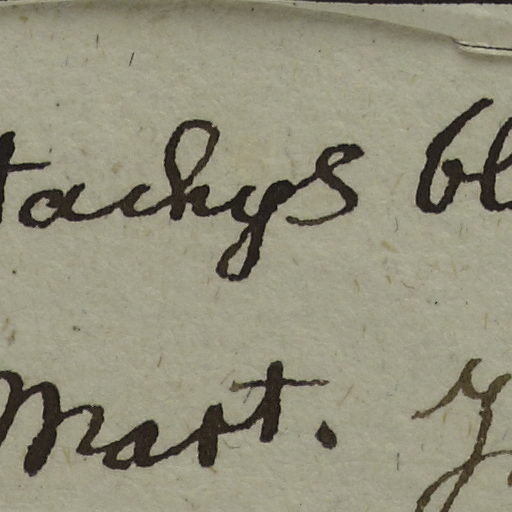 tachys bl
Mart.